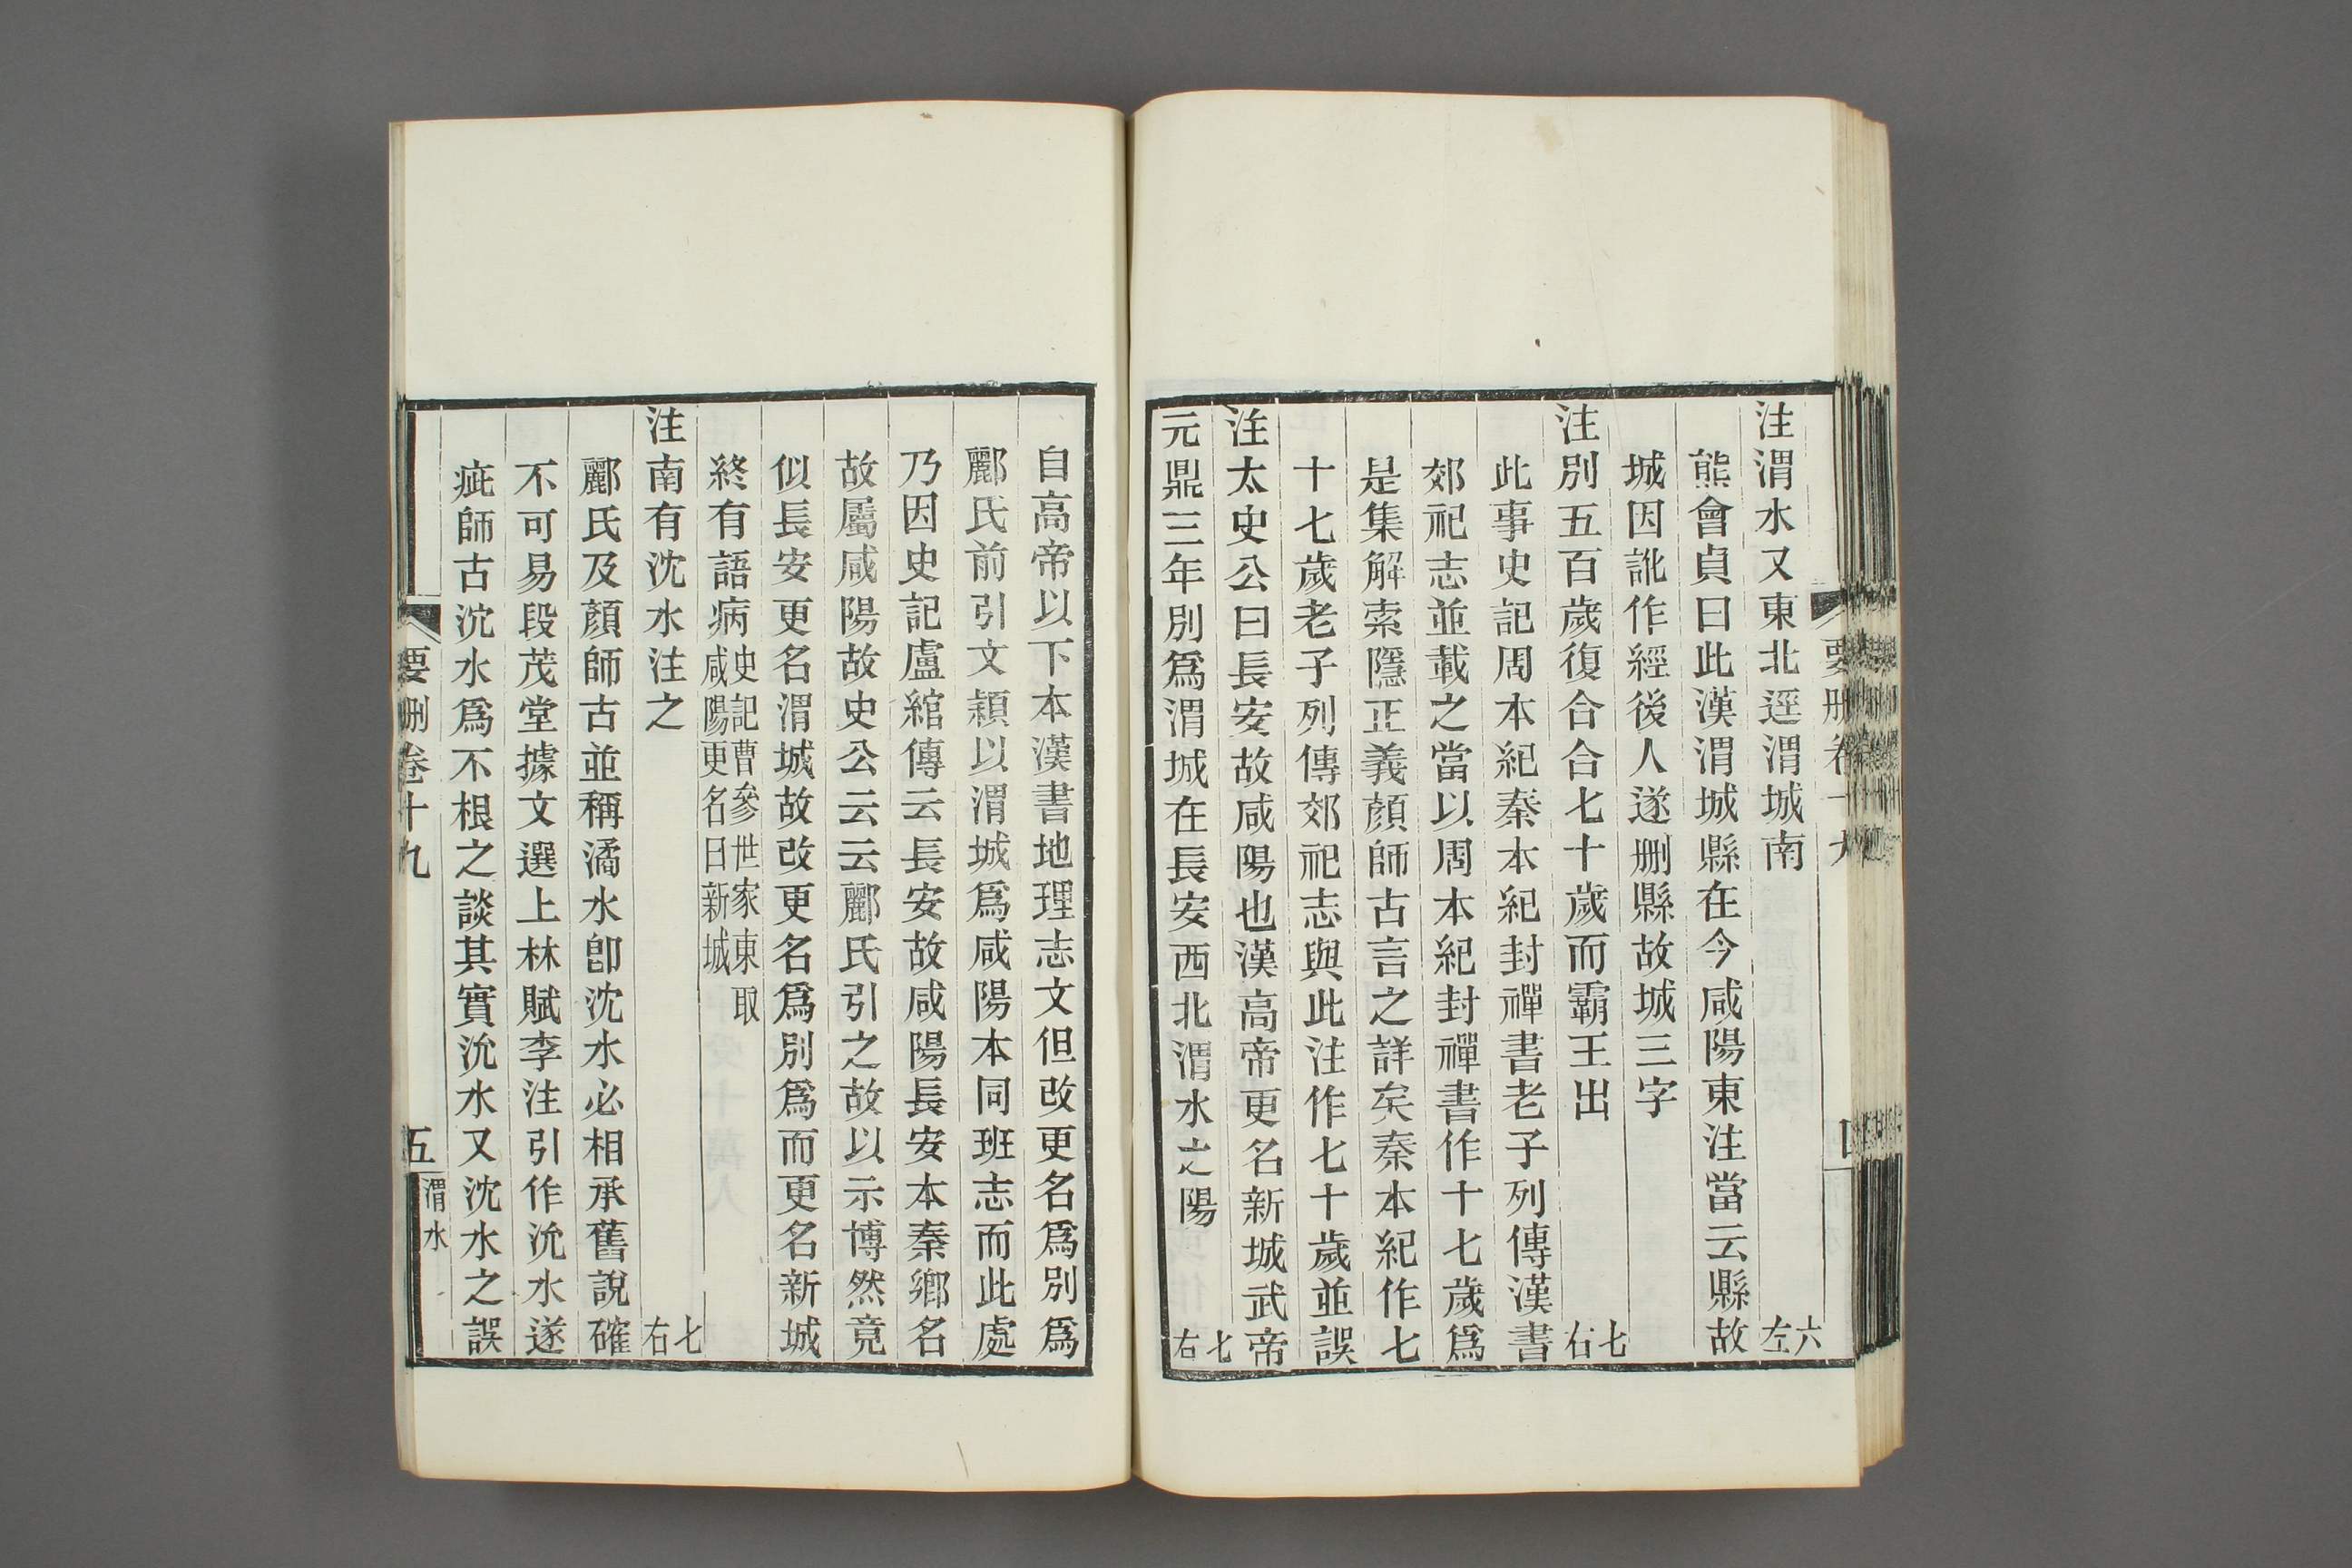 要刪卷十九
注渭水又東北逕渭城南 六左
熊會貞曰此漢渭城縣在今咸陽東注當云縣故
城因訛作經後人遂刪縣故城三字
注別五百歲復合合七十歲而霸王出 七右
此事史記周本紀秦本紀封禪書老子列傳漢書
郊祀志並載之當以周本紀封禪書作十七歲爲
是集解索隱正義顏師古言之詳矣秦本紀作七
十七歲老子列傳郊祀志與此注作七十歲並誤
注太史公曰長安故咸陽也漢高帝更名新城武帝
元鼎三年別爲渭城在長安西北渭水之陽 七右
自高帝以下本漢書地理志文但改更名爲別爲
酈氏前引文穎以渭城爲咸陽本同班志而此處
乃因史記盧綰傳云長安故咸陽長安本秦鄉名
故屬咸陽故史公云云酈氏引之故以示博然竟
似長安更名渭城故改更名爲別爲而更名新城
終有語病史記曹參世家東取咸陽更名曰新城
注南有沈水注之 七右
酈氏及顏師古並稱潏水卽沈水必相承舊說確
不可易段茂堂據文選上林賦李注引作沇水遂
疵師古沇水爲不根之談其實沇水又沈水之誤
要刪卷十九
五
渭水